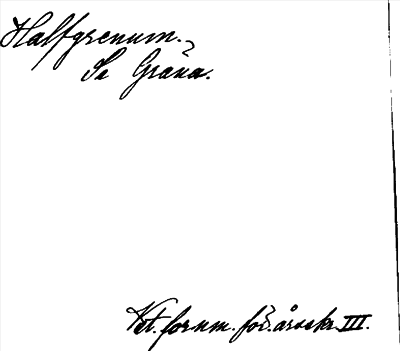 Halfgrenum.
Se Gräna.
Vet. forum. för. årsskr. III.